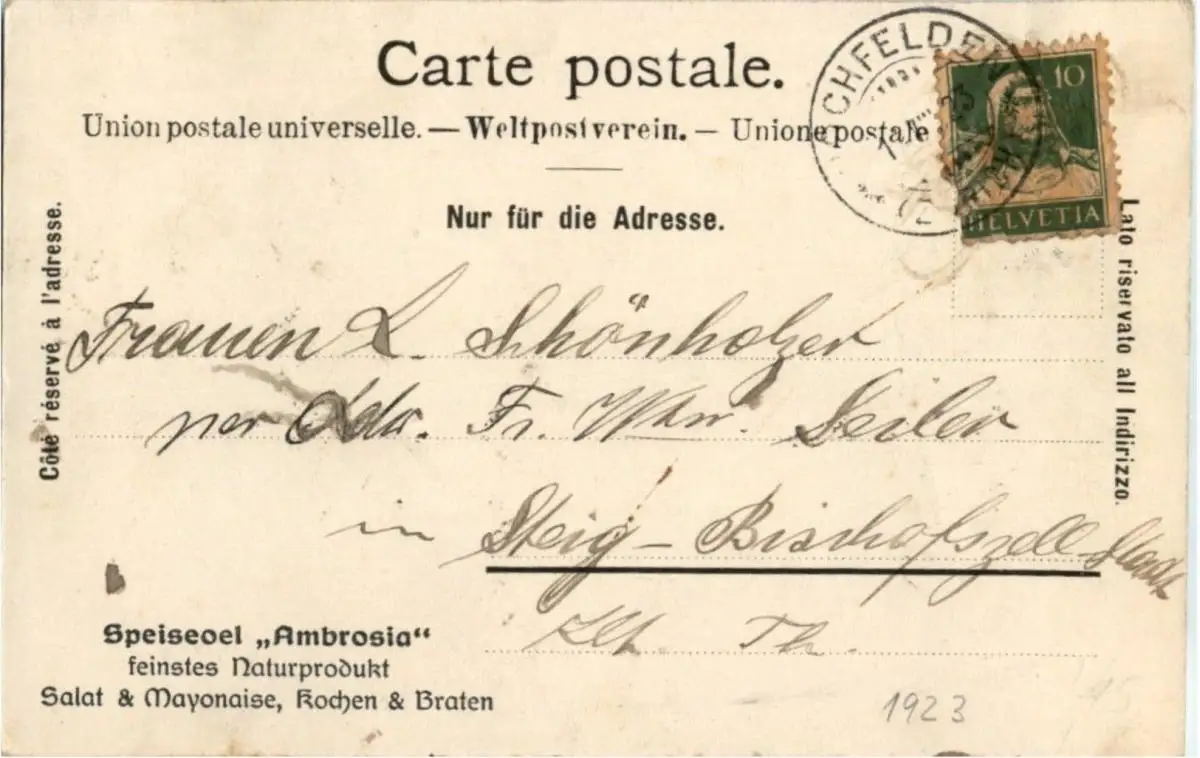 Carte postale.
Union postale universelle. — Weltpostverein. — Unione postale
Nur für die Adresse.
CHFELDEN
10
HELVETIA
Côté réservé à l'adresse.
Lato riservato all Indirizzo.
Frauen L. Schönholzer
per Adr. Fr. Wtw. Seiler
in Steig – Bischofszell-Stadt
Kt. Th.
Speiseoel „Ambrosia“
feinstes Naturprodukt
Salat & Mayonaise, Kochen & Braten
1923